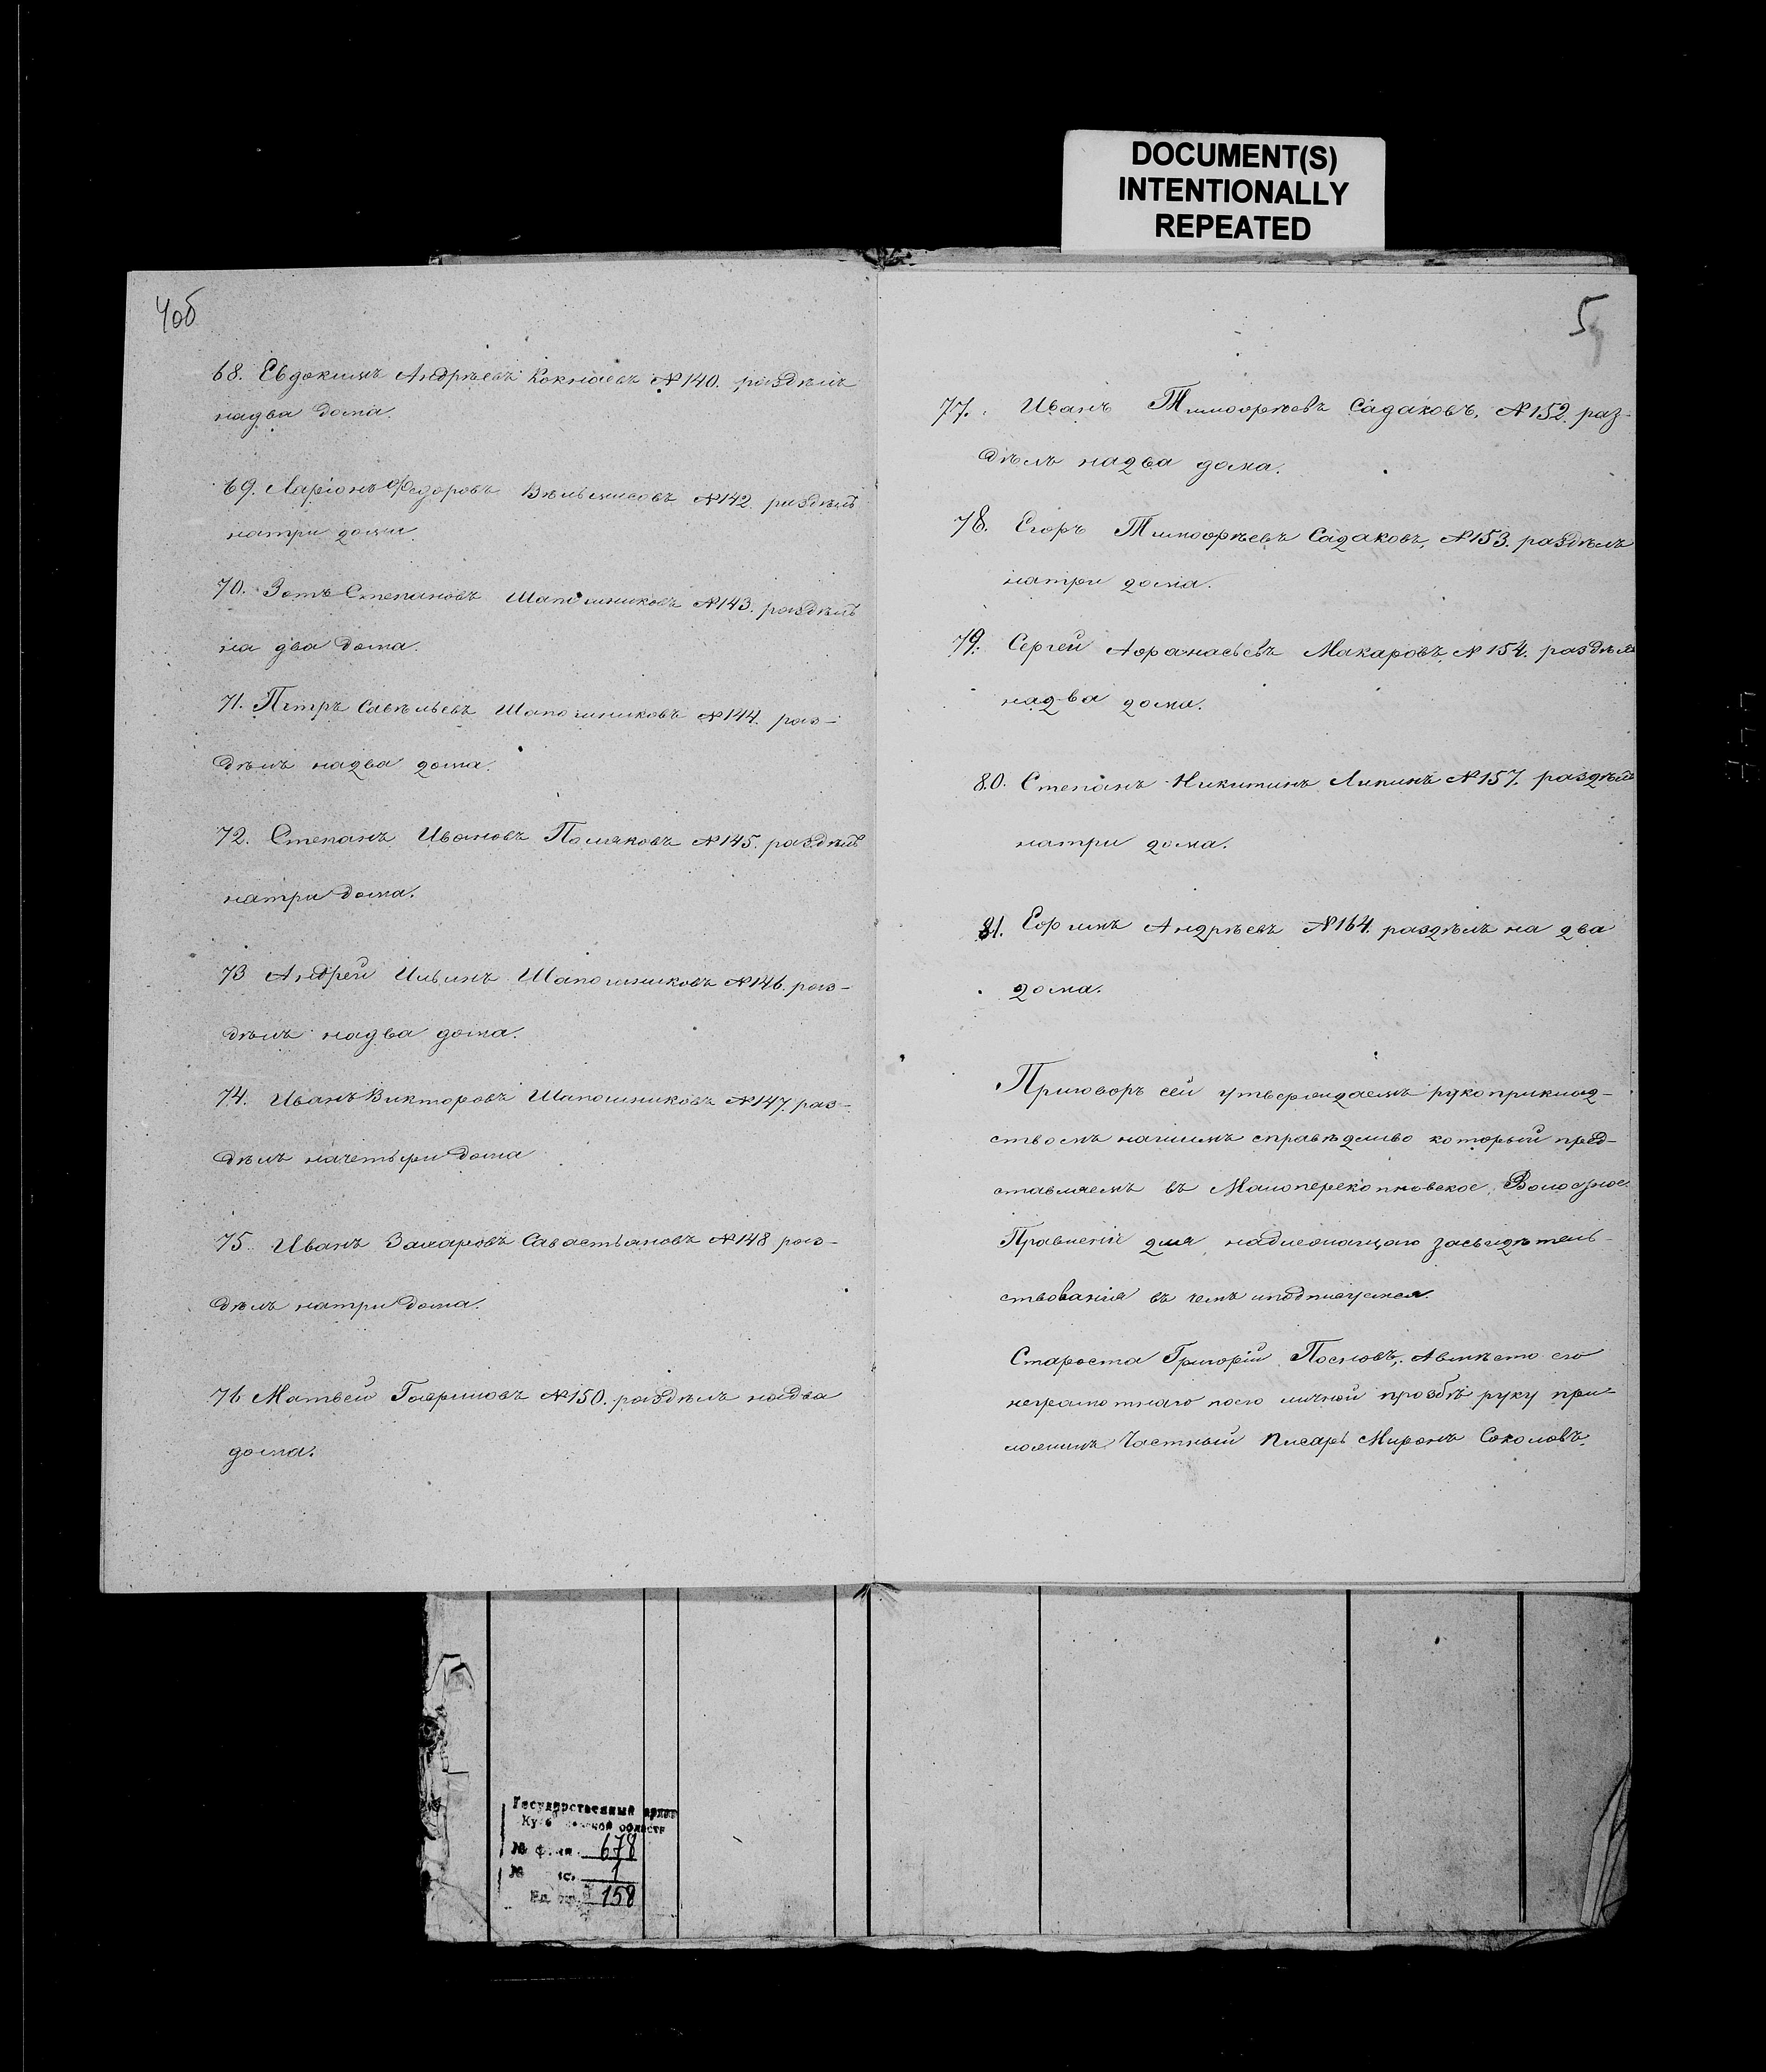 DOCUMENT(S)
INTENTIONALLY
REPEATED
4об
68. Евдокимъ Андрѣевъ №140. раздѣлъ
надва дома.
69. Ларіонъ Федоровъ №142. раздѣлъ
натри дома.
70. Зотъ Степановъ Шапошниковъ №143. раздѣлъ
на два дома.
71. Петръ Савельевъ Шапошниковъ №144. раз-
дѣлъ надва дома.
72. Степанъ Ивановъ Поляковъ №145. раздѣлъ
натри дома.
73 Андрей Ильинъ Шапошниковъ №146. раз-
дѣлъ надва дома.
74. Иванъ Викторовъ Шапошниковъ №147. раз-
дѣлъ начетыри дома
75. Иванъ Захаровъ Савастьановъ №148 раз-
дѣлъ натри дома.
76 Матвей Гавриловъ №150. раздѣлъ надва
дома.
5
77. Иванъ Тимофѣевъ Садаковъ, №152. раз-
дѣлъ надва дома.
78. Егоръ Тимофѣевъ Садаковъ, №153. раздѣлъ
натри дома.
79. Сергей Афанасьевъ Макаровъ, №154. раздѣлъ
надва дома.
80. Степанъ Никитинъ Липинъ №157. раздѣлъ
натри дома.
81. Ефимъ Андрѣевъ №164. раздѣлъ на два
дома.
Приговоръ сей утверждаемъ рукоприклад-
ствомъ нашимъ справѣдливо который пред-
ставляемъ въ Малоперекопновское Волосное
Правленіе для надлежащаго засвидѣтель-
ствованія въ чемъ иподписуемся.
Староста Григорій Посновъ, Авмѣсто его
неграмотнаго поего личной прозбѣ руку при-
ложилъ Частный Писарь Миронъ Соколовъ.
Государственный архив
области
№ 678
№ 1
158